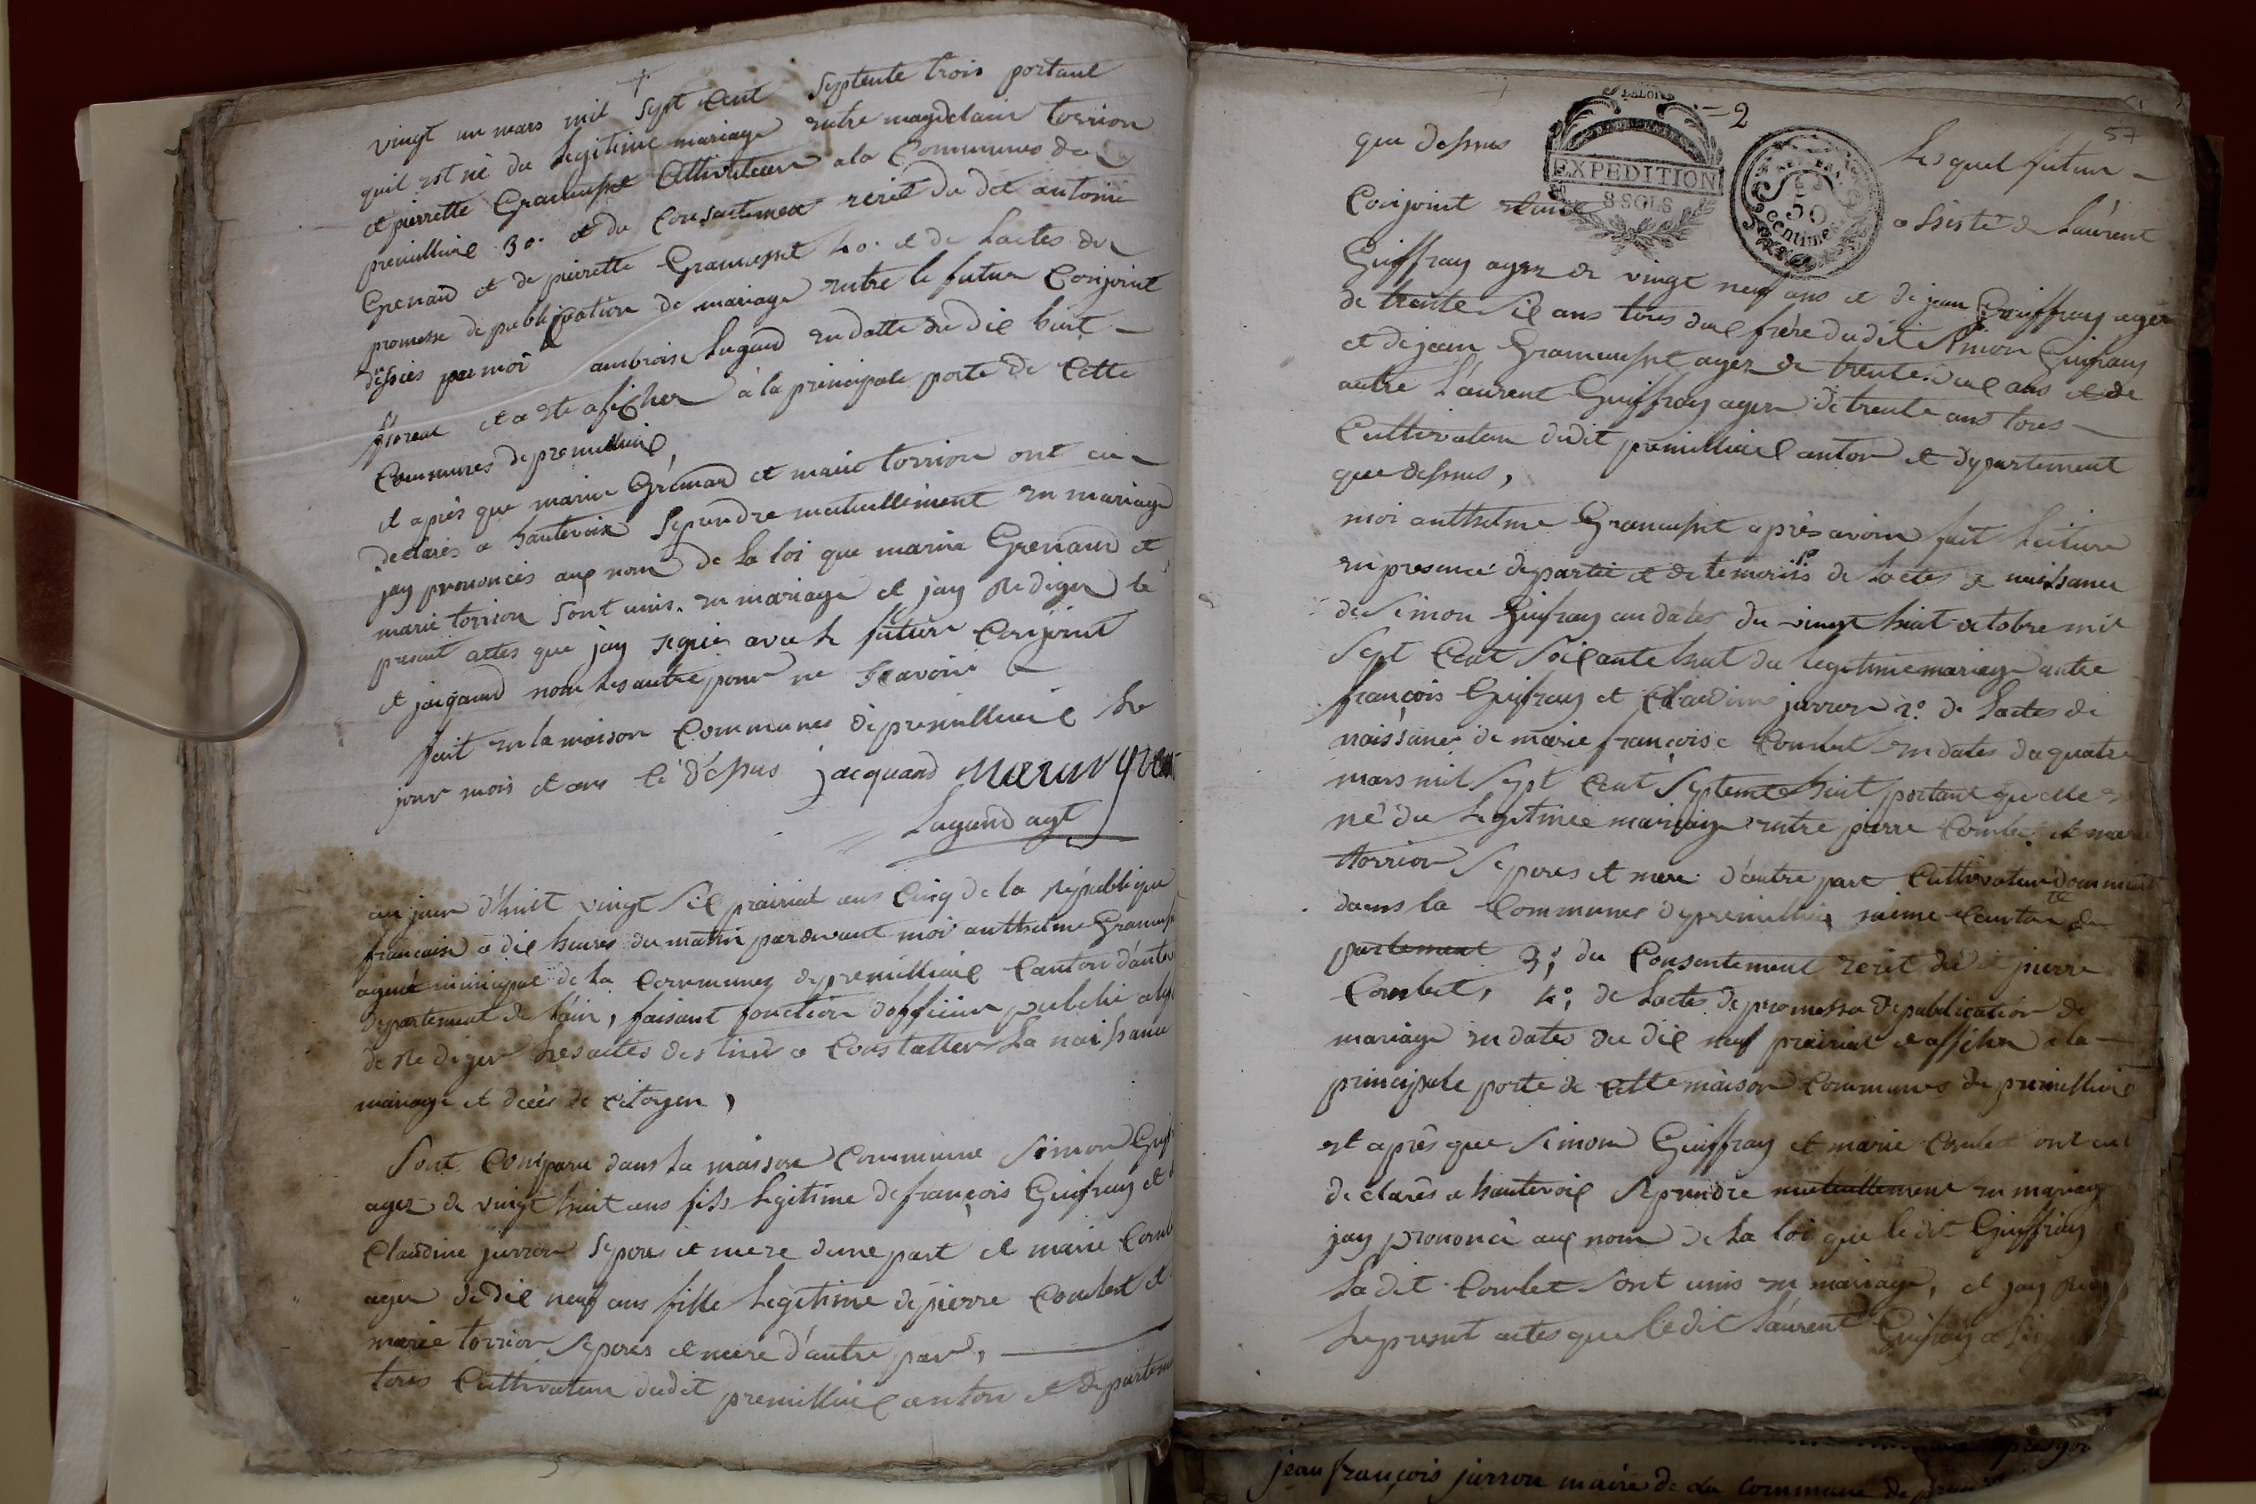 vingt un mars mil sept cent septente trois portant
quil est né du legitime mariage entre magdelain torrion
et pierrette Gramusset Cultivateur a la Communes de
premillieu 3o. et du Consentement du dit antoine
Grenaud et de pierrette Gramusset 4o. et de lactes de
promesse de publication de mariage entre le futur Conjoint
par moi ambroise Lugand en datte du dix huit
floreal et a été aficher à la principale porte de Cette
Communes de premillieu
et après que marin Grenaud et marie torrion ont eu
declarés a hautevoix se prendre mutuellement en mariage
jay prononcés aux nom de la loi que marin Grenaud et
marie torrion sont unis en mariage et jay Rediger le
present actes que jay signé avec le future Conjoint
et jacquand non les autre pour ne scavoir
fait en la maison Communes de premillieu le
jour mois et ans cé dépus jacquand marin gren
Lugand agt
au jour d'huit vingt six prairial ans Cinq de la République
francaise a dix heures du matin pardevant moi anthelme Gramus
agent municipal de la Communes de premillieu Canton dante
departement de lain, faisant fonction dofficier public
de Rediger les actes destiné a Constatter la naissance
mariage et décès de Citoyen,
Sont Comparu dans la maison Commune Simon Guif
ager de vingt huit ans fils legitime de françois Guifray et
Claudine jurron se peres et mere dune part et marie Comb
ager de dix neuf ans fille legitime de pierre Combet et
marie torrion se peres et mere d'autre part,
tous Cultivateur dudit premillieu Canton et departem
57
2
EXPEDITION
8 SOLS
50
Centimes
que dessus Lesquel futur
Conjoint assisté de Laurent
Guiffray ager de vingt neuf ans et de jean Guiffray ager
de trente six ans tous deux frère dudit Simon Guifray
et de jean Gramusset ager de trente deux ans et de
autre Laurent Guiffray ager de trente ans tous
Cultivateur dudit premillieu Canton et departement
que dessus,
moi anthelme Gramusset après avoir fait lecture
en presence de partie et de temoins de lactes de naissance
de Simon Guifray en dates du vingt huit octobre mil
sept Cent soixante huit du legitime mariage entre
françois Guifray et Claudine jurron 2o. de lactes de
naissance de marie françoise Combet en dates du quatre
mars mil sept Cent septente huit portant quelle
né du legitime mariage entre pierre Combet et marie
torrion se peres et mere d'autre part Cultivateur
dans la Communes de premillieu meme Canton de
partement 3o; du Consentement de pierre
Combet, 4o; de lactes de promesse de publication de
mariage en dates du dix neuf prairial et afficher a la
principale porte de Cette maison Communes de premillieu
et après que Simon Guiffray et marie Combet ont eu
declarés a hautevoix se prendre mutuellement en mariage
jay prononcé aux nom de la loi que le dit Guiffray
ladit Combet sont unis en mariage, et jay
le present actes que ledit Laurent Guifray a
jean françois jurron maire de la commune de